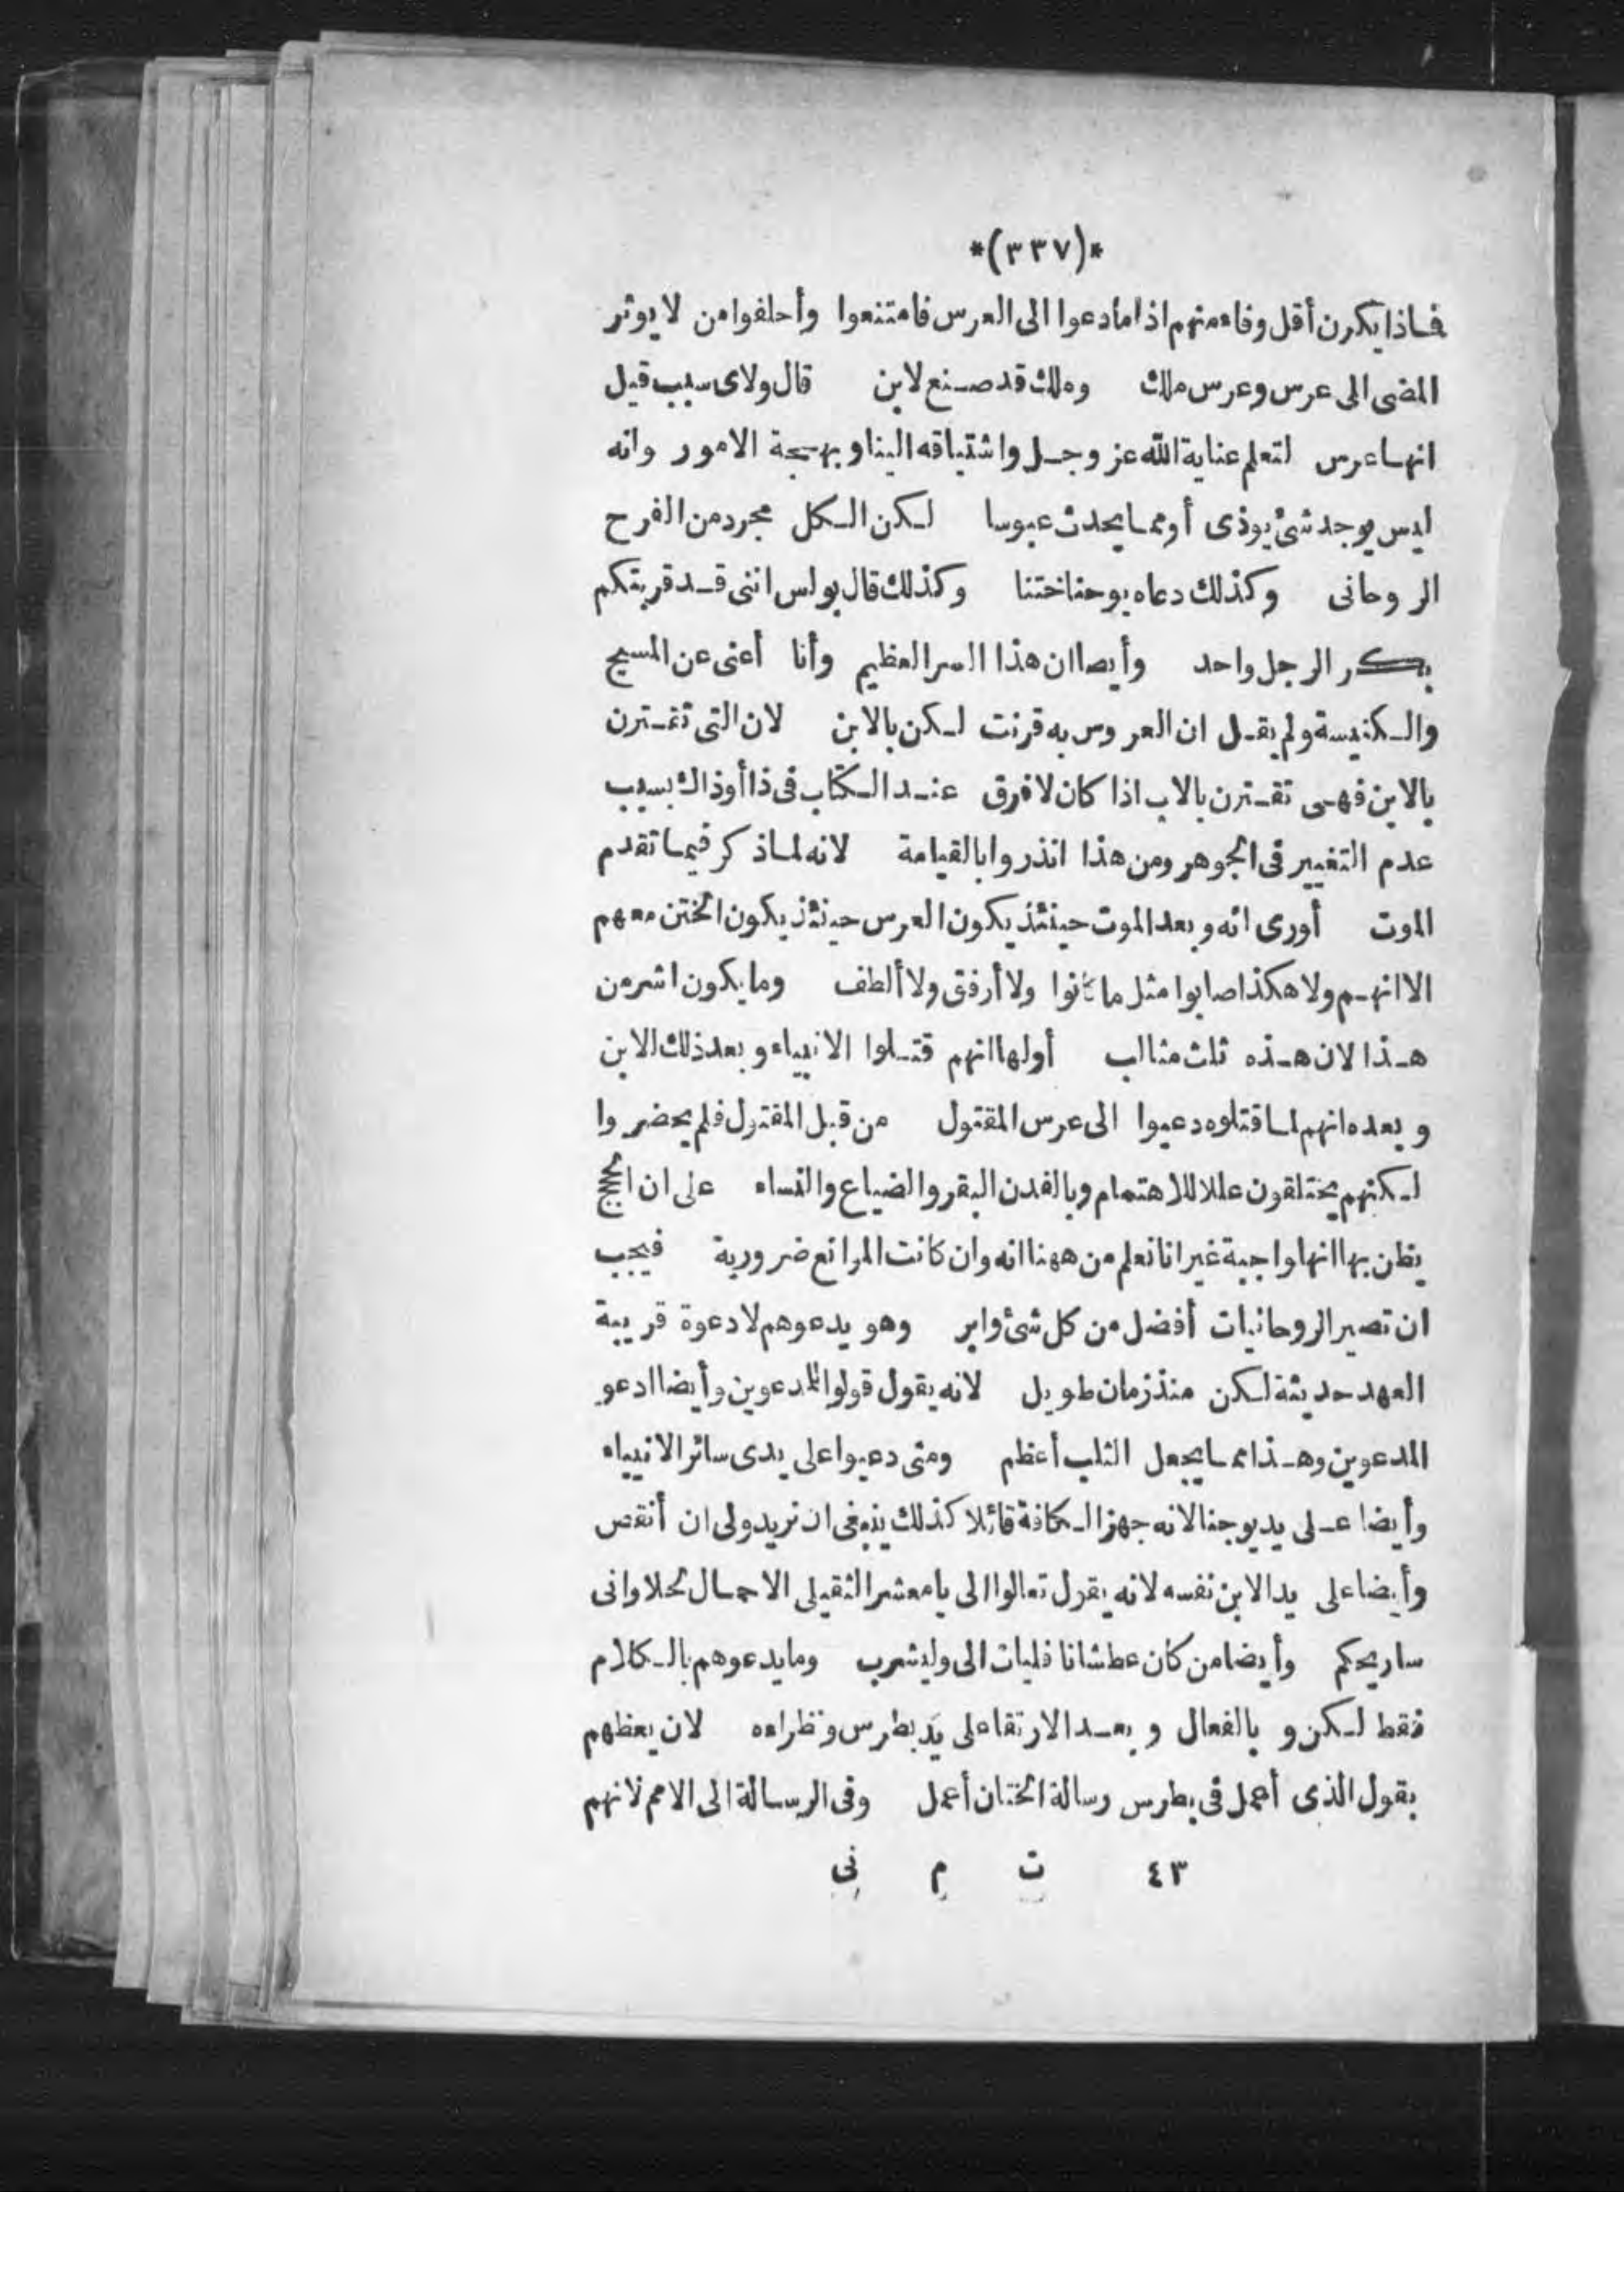 *(٣٣٧)*
فاذا يكون أقل وفاء منهم اذا ما أدعوا الى العرس فامتنعوا وأحلفوا من لا يوثر
المضى الى عرس وعرس ملك وملك قد صنع لابن قال ولاى سبب قيل
انها عرس لتعلم عناية الله عز وجل واشتياقه الينا وبهجة الامور وانه
ليس يوجد شئ يوذى أو مما يحدث عبوسا لكن الكل مجرد من الفرح
الروحانى وكذلك دعاه يوحنا ختنا وكذلك قال بولس اننى قد قربتكم
بكر الرجل واحد وأيضا ان هذا السر العظيم وأنا أعنى عن المسيح
والكنيسة ولم يقل ان العروس به قرنت لكن بالابن لان التى تقترن
بالابن فهى تقترن بالاب اذا كان لا فرق عند الكتاب فى ذا أو ذاك بسبب
عدم التغيير فى الجوهر ومن هذا انذروا بالقيامة لانه لما ذكر فيما تقدم
الموت أورى انه وبعد الموت حينئذ يكون العرس حينئذ يكون الختن معهم
الا انهم ولا هكذا صابوا مثل ما كانوا ولا أرفق ولا ألطف وما يكون اشر من
هذا لان هذه ثلث مثالب أولها انهم قتلوا الانبياء وبعد ذلك الابن
وبعده انهم لما قتلوه دعيوا الى عرس المقتول من قبل المقتول فلم يحضروا
لكنهم يختلقون عللا للاهتمام وبالفدن البقر والضياع والنساء على ان الحجج
يظن بها انها واجبة غير انا نعلم من ههنا انه وان كانت الموانع ضرورية فيجب
ان تصير الروحانيات أفضل من كل شئ وابر وهو يدعوهم لا دعوة قريبة
العهد حديثة لكن منذ زمان طويل لانه يقول قولوا للمدعوين وأيضا ادعو
المدعوين وهذا مما يجعل الثلب أعظم ومتى دعيوا على يدى سائر الانبياء
وأيضا على يد يوحنا لانه جهز الكافة قائلا كذلك ينبغى ان تريد ولى ان أنقص
وأيضا على يد الابن نفسه لانه يقول تعالوا الى يا معشر الثقيلى الاحمال لحلاوانى
ساريحكم وأيضا من كان عطشانا فليات الى وليشرب وما يدعوهم بالكلام
فقط لكن و بالفعال و بعد الارتقا على يد بطرس ونظراءه لان يعظهم
بقول الذى أعمل فى بطرس رسالة الختان أعمل وفى الرسالة الى الامم لانهم
٤٣ ت م نى